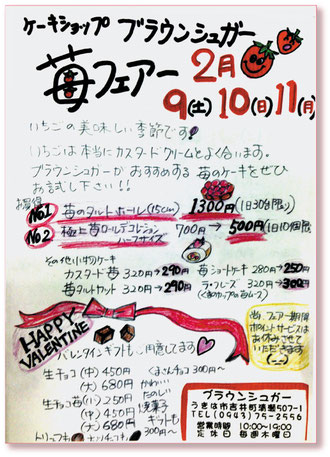 ケーキショップ ブラウンシュガー
苺フェアー 2月
9(土) 10(日) 11(月)
いちごの美味しい季節です!
いちごは本当にカスタードクリームとよく合います。
ブラウンシュガーがおすすめする 苺のケーキをぜひ
お試し下さい!!
お得得
No.1 苺のタルトホール(15cm) 1300円 (1日30台限り)
No.2 極上苺ロールデコレション ハーフサイズ 700円→500円(1日10個限)
その他小物ケーキ
カスタード苺 320円→290円 苺ショートケーキ 280円→250円
苺タルトカット 320円→290円 ラ・フレーズ 320円→300円
HAPPY VALENTINE
バレンタインギフトもご用意してます
当、フェアー期間
ポイントサービスは
お休みさせて
いただきます
生チョコ (中) 450円 くまさんチョコ 300円〜
(大) 680円 かわいい
たのしい
生チョコ苺 (小) 250円 焼菓子
(中) 450円 ギフトも
(大) 680円 300円〜
ブラウンシュガー
うきは市吉井町清瀬507-1
TEL(0943)75-2556
営業時間 10:00〜19:00
定休日 毎週木曜日